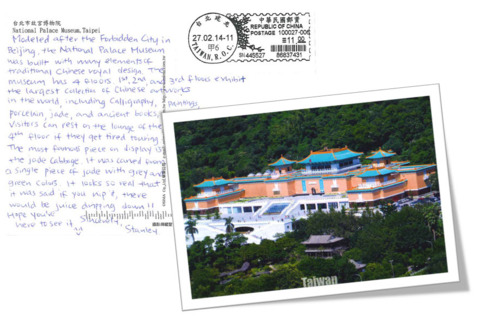 台北郵局
27.02.14-11
甲6
TAIWAN, R.O.C.
中華民國郵資
REPUBLIC OF CHINA
POSTAGE 100027-006
11.00
SN 445527 86837431
台北市故宮博物院
National Palace Museum, Taipei
Modeled after the Forbidden City in
Beijing, the National Palace Museum
was built with many elements of
traditional Chinese royal design. The
museum has 4 floors 1st, 2nd, and 3rd floors exhibit
the largest collection of Chinese artworks
in the world, including Calligraphy, paintings,
porcelain, jade, and ancient books.
Visitors can rest on the lounge of the
4th floor if they get tired touring.
The most famous piece on display is
the jade Cabbage. It was carved from
a single piece of jade with grey and
green colors. It looks so real that
it was said if you nip it, there
would be juice dripping down!!
Hope you're
here to see it
Sincerely,
Stanley
Taiwan